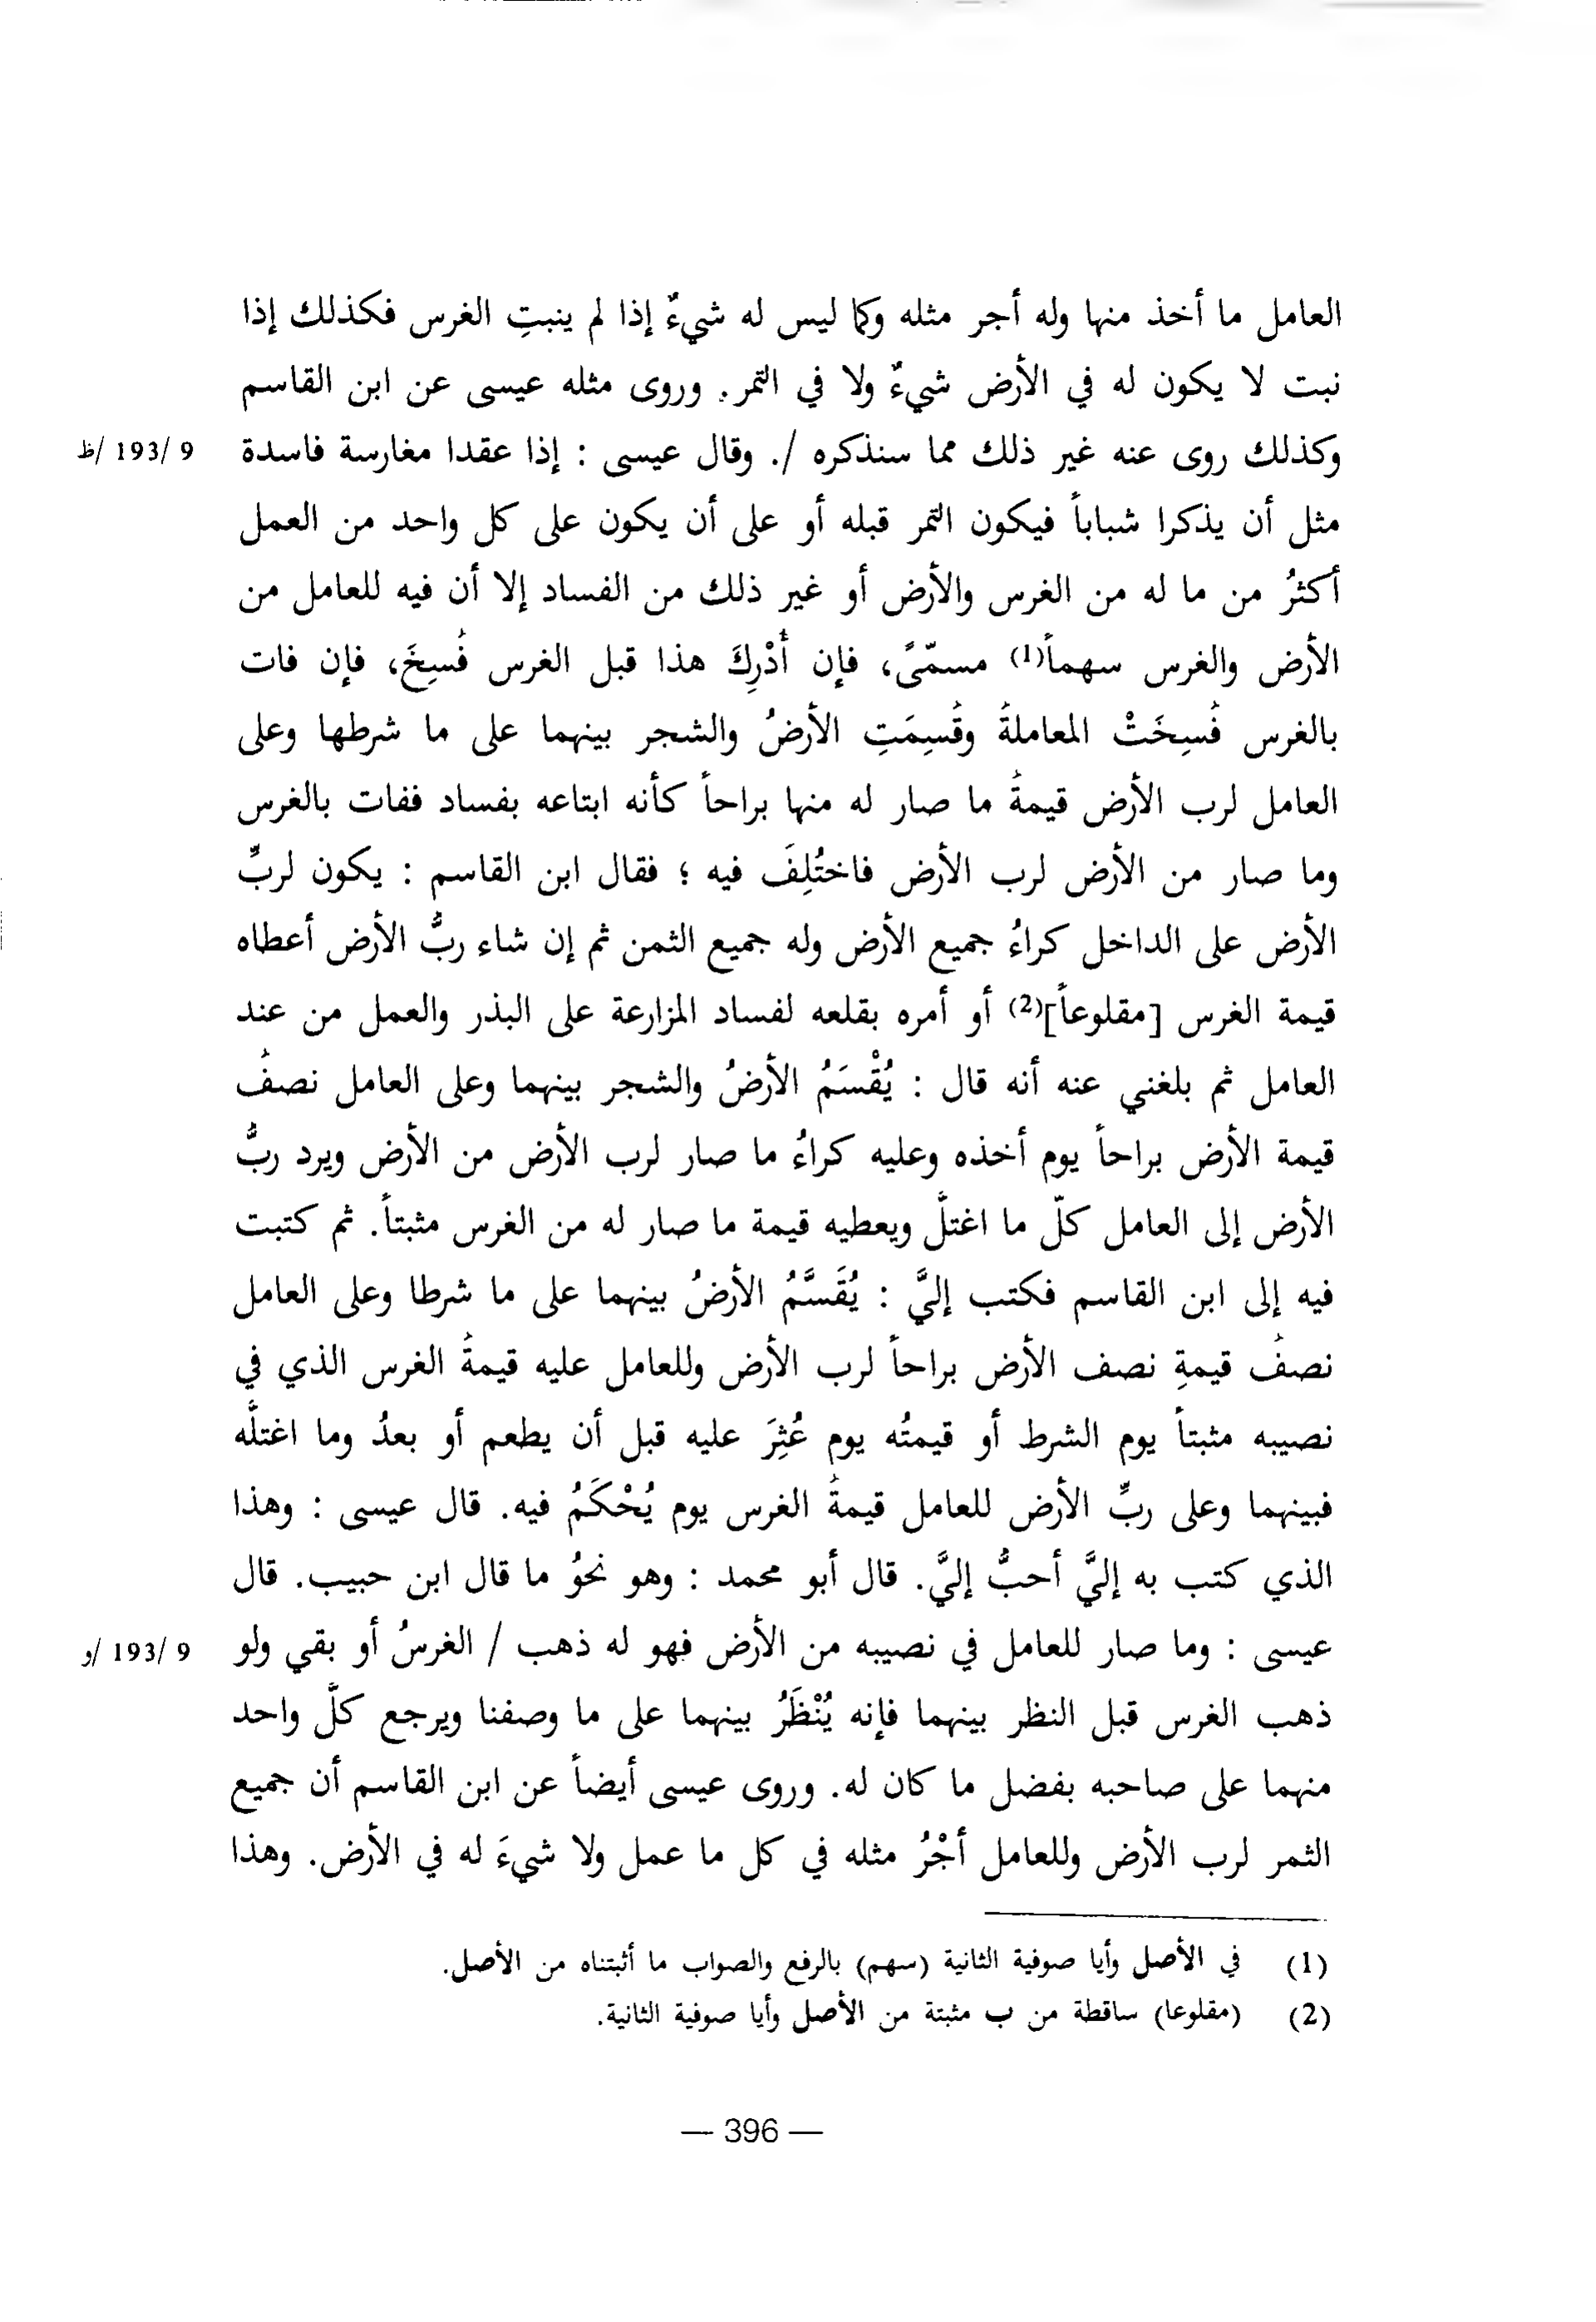 العامل ما أخذ منها وله أجر مثله وكما ليس له شيءٌ إذا لم ينبتِ الغرس فكذلك إذا
نبت لا يكون له في الأرض شيءٌ ولا في التمر. وروى مثله عيسى عن ابن القاسم
وكذلك روى عنه غير ذلك مما سنذكره /. وقال عيسى : إذا عقدا مغارسة فاسدة 9 /193 /ظ
مثل أن يذكرا شباباً فيكون التمر قبله أو على أن يكون على كل واحد من العمل
أكثرُ من ما له من الغرس والأرض أو غير ذلك من الفساد إلا أن فيه للعامل من
الأرض والغرس سهماً(1) مسمّىً، فإن أُدْرِكَ هذا قبل الغرس فُسِخَ، فإن فات
بالغرس فُسِخَتْ المعاملةُ وقُسِمَتِ الأرضُ والشجر بينهما على ما شرطها وعلى
العامل لرب الأرض قيمةُ ما صار له منها براحاً كأنه ابتاعه بفساد ففات بالغرس
وما صار من الأرض لرب الأرض فاختُلِفَ فيه ؛ فقال ابن القاسم : يكون لربِّ
الأرض على الداخل كراءُ جميع الأرض وله جميع الثمن ثم إن شاء ربُّ الأرض أعطاه
قيمة الغرس [مقلوعاً](2) أو أمره بقلعه لفساد المزارعة على البذر والعمل من عند
العامل ثم بلغني عنه أنه قال : يُقْسَمُ الأرضُ والشجر بينهما وعلى العامل نصفُ
قيمة الأرض براحاً يوم أخذه وعليه كراءُ ما صار لرب الأرض من الأرض ويرد ربُّ
الأرض إلى العامل كلّ ما اغتلَّ ويعطيه قيمة ما صار له من الغرس مثبتاً. ثم كتبت
فيه إلى ابن القاسم فكتب إليَّ : يُقَسَّمُ الأرضُ بينهما على ما شرطا وعلى العامل
نصفُ قيمةِ نصف الأرض براحاً لرب الأرض وللعامل عليه قيمةُ الغرس الذي في
نصيبه مثبتاً يوم الشرط أو قيمتُه يوم عُثِرَ عليه قبل أن يطعم أو بعدُ وما اغتلَّه
فبينهما وعلى ربِّ الأرض للعامل قيمةُ الغرس يوم يُحْكَمُ فيه. قال عيسى : وهذا
الذي كتب به إليَّ أحبُّ إليَّ. قال أبو محمد : وهو نحوُ ما قال ابن حبيب. قال
عيسى : وما صار للعامل في نصيبه من الأرض فهو له ذهب / الغرسُ أو بقي ولو 9 /193 /و
ذهب الغرس قبل النظر بينهما فإنه يُنْظَرُ بينهما على ما وصفنا ويرجع كلَّ واحد
منهما على صاحبه بفضل ما كان له. وروى عيسى أيضاً عن ابن القاسم أن جميع
الثمر لرب الأرض وللعامل أجْرُ مثله في كل ما عمل ولا شيءَ له في الأرض. وهذا
(1) في الأصل وأيا صوفية الثانية (سهم) بالرفع والصواب ما أثبتناه من الأصل.
(2) (مقلوعا) ساقطة من ب مثبتة من الأصل وأيا صوفية الثانية.
— 396 —